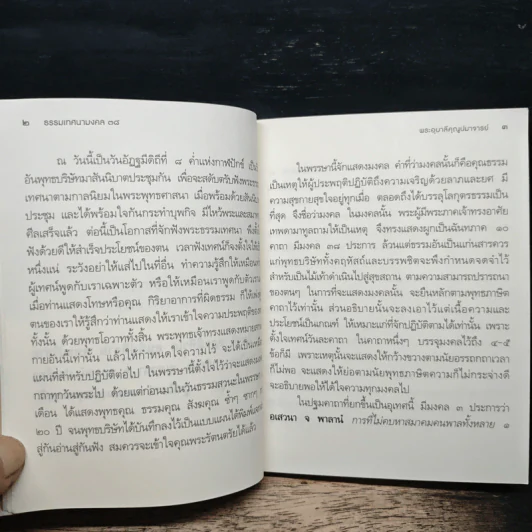 ๒ ธรรมเทศนามงคล ๓๘
ณ วันนี้เป็นวันอัฏฐมีดิถีที่ ๘ ค่ำแห่งกาฬปักข์ เป็น
อันพุทธบริษัทมาสันนิบาตประชุมกัน เพื่อจะสดับตรับฟังพระธรรม
เทศนาตามกาลนิยมในพระพุทธศาสนา เมื่อพร้อมด้วยสันนิบาต
ประชุม และได้พร้อมใจกันกระทำบุพกิจ มีไหว้พระและสมาทาน
ศีลเสร็จแล้ว ต่อนี้เป็นโอกาสที่จักฟังพระธรรมเทศนา พึงตั้งใจ
ฟังด้วยดีให้สำเร็จประโยชน์ของตน เวลาฟังเทศน์ก็จงตั้งใจให้เป็น
หนึ่งแน่ ระวังอย่าให้แส่ไปในที่อื่น ทำความรู้สึกให้เหมือน
ผู้เทศน์พูดกับเราเฉพาะตัว หรือให้เหมือนเราพูดกับตัวเราเอง
เมื่อท่านแสดงโทษหรือคุณ กิริยาอาการที่ผิดธรรม ก็ให้
ตนของเราให้รู้สึกว่าท่านแสดงให้เราเข้าใจความประพฤติของ
ทั้งนั้น ด้วยพุทธโอวาททั้งสิ้น พระพุทธเจ้าทรงแสดงหมาย
กายอันนี้เท่านั้น แล้วให้กำหนดใจความไว้ จะได้เป็น
แผนที่สำหรับปฏิบัติต่อไป ในพรรษานี้ตั้งใจไว้ว่าจะแสดง
กล่าทุกวันพระไป ด้วยแต่ก่อนมาในวันธรรมสวนะในพรรษา
เดือน ได้แสดงพุทธคุณ ธรรมคุณ สังฆคุณ ซ้ำๆ ซากๆ
๒๐ ปี จนพุทธบริษัทได้บันทึกลงไว้เป็นแบบแผนได้พิมพ์
สู่กันอ่านสู่กันฟัง สมควรจะเข้าใจคุณพระรัตนตรัยได้แล้ว
พระอุบาลีคุณูปมาจารย์ ๓
ในพรรษานี้จักแสดงมงคล คำที่ว่ามงคลนั้นก็คือคุณธรรม
เป็นเหตุให้ผู้ประพฤติปฏิบัติถึงความเจริญด้วยลาภและยศ มี
ความสุขกายสุขใจอยู่ทุกเมื่อ ตลอดถึงได้บรรลุโลกุตรธรรมเป็น
ที่สุด จึงชื่อว่ามงคล ในมงคลนั้น พระผู้มีพระภาคเจ้าทรงอาศัย
เทพดามาทูลถามให้เป็นเหตุ จึงทรงแสดงผูกเป็นฉันทภาค ๑๐
คาถา มีมงคล ๓๘ ประการ ล้วนแต่ธรรมอันเป็นแก่นสารควร
แก่พุทธบริษัททั้งคฤหัสถ์และบรรพชิตจะพึงกำหนดจดจำไว้
สำหรับเป็นไม้เท้าดำเนินไปสู่สุขสถาน ตามความสามารถปรารถนา
ของตนๆ ในการที่จะแสดงมงคลนั้น จะยืนหลักตามพุทธภาษิต
คาถาไว้เท่านั้น ส่วนอธิบายนั้นจะลงเอาไว้แต่เนื้อความและ
ประโยชน์เป็นเกณฑ์ ให้เหมาะแก่ที่จักปฏิบัติตามได้เท่านั้น เพราะ
ตั้งใจเทศน์วันละคาถา ในคาถาหนึ่งๆ บรรจุมงคลไว้ถึง ๔-๕
ข้อก็มี เพราะเหตุนั้นจะแสดงให้กว้างขวางตามนัยอรรถกถาเวลา
ก็ไม่พอ จะแสดงให้ย่อตามนัยพุทธภาษิตความก็ไม่กระจ่างดี
จะอธิบายพอให้ได้ใจความทุกมงคลไป
ในปฐมคาถาที่ยกขึ้นเป็นอุเทศนี้ มีมงคล ๓ ประการว่า
อเสวนา จ พาลานํ การที่ไม่คบหาสมาคมคนพาลทั้งหลาย ๑